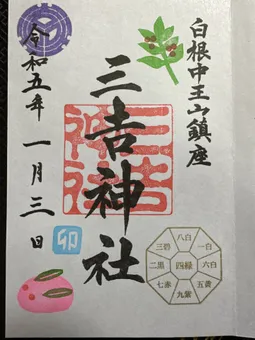 白根中王山鎮座
三吉神社
令和五年 一月三日
三吉
神社
卯
八白
一白
六白
五黄
九紫
七赤
二黒
三碧
四緑